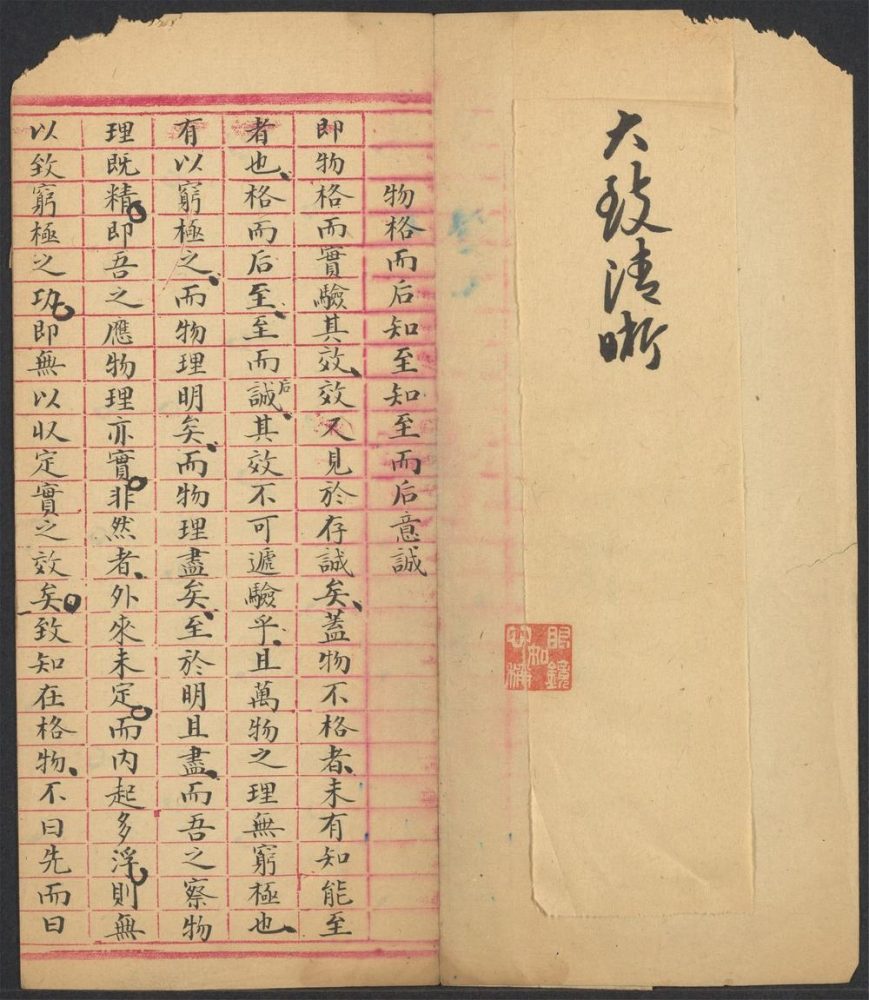 大致清晰
眼鏡
物格而后知至知至而后意誠
即物格而實驗其效效又見於存誠矣蓋物不格者未有知能至
者也格而后至至而后誠其效不可遞驗乎且萬物之理無窮極也
有以窮極之而物理明矣而物理盡矣至於明且盡而吾之察物
理既精即吾之應物理亦實非然者外來未定而內起多浮則無
以致窮極之功即無以収定實之效矣致知在格物不曰先而曰